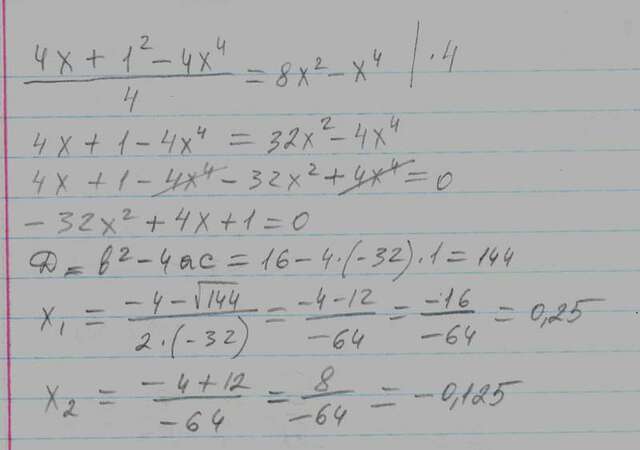 (4x + 1² - 4x⁴)/4 = 8x² - x⁴ | · 4
4x + 1 - 4x⁴ = 32x² - 4x⁴
4x + 1 - 4x⁴ - 32x² + 4x⁴ = 0
- 32x² + 4x + 1 = 0
D = b² - 4ac = 16 - 4 · (-32) · 1 = 144
x₁ = (-4 - √144)/(2 · (-32)) = (-4 - 12)/(-64) = (-16)/(-64) = 0,25
x₂ = (-4 + 12)/(-64) = 8/(-64) = -0,125